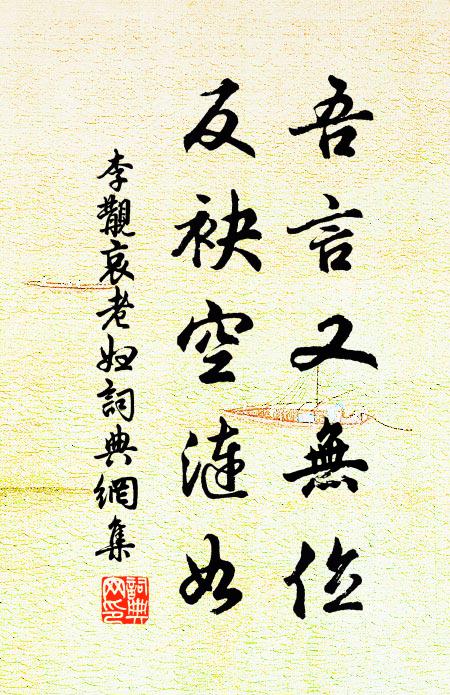 吾言又無位
反袂空漣如
李覯哀老妇詞典網集
詞典
网印